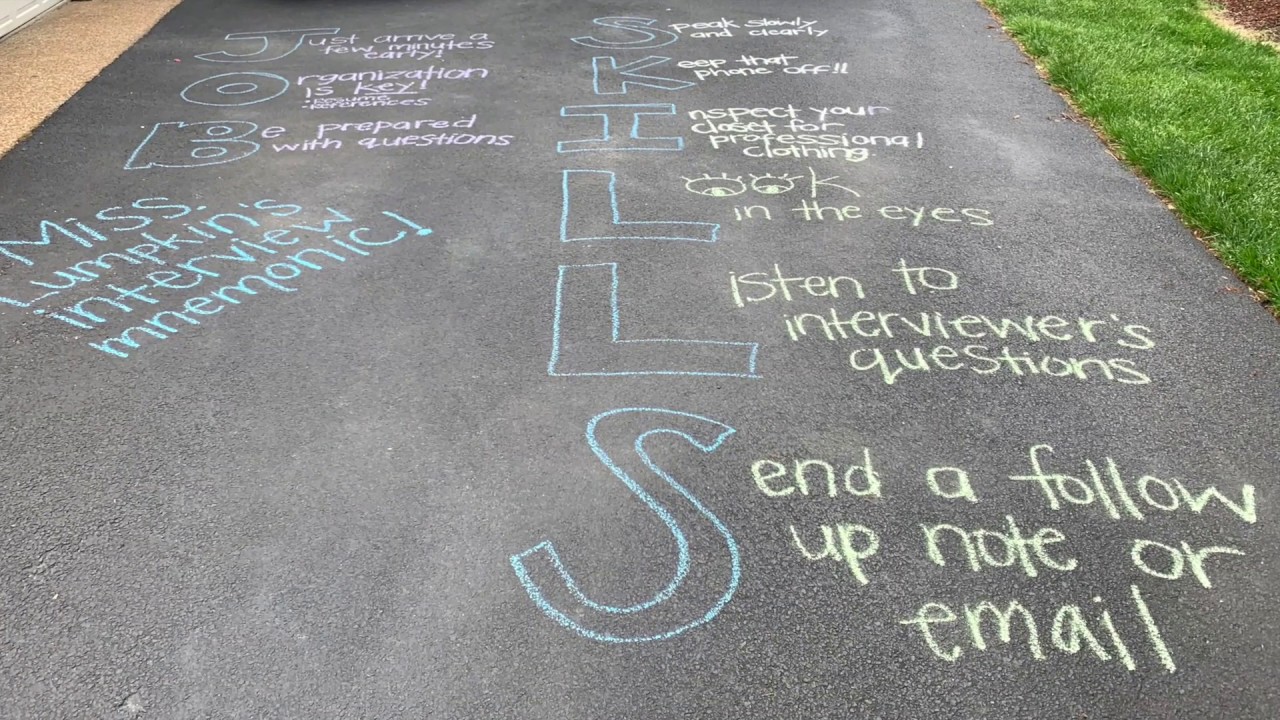 Just arrive a
few minutes
early!
Organization
is key!
• resume
• references
Be prepared
with questions
Miss.
Lumpkin's
interview
mnemonic!
Speak slowly
and clearly
Keep that
phone off!!
Inspect your
closet for
professional
clothing.
Look
in the eyes
Listen to
interviewer's
questions
Send a follow
up note or
email